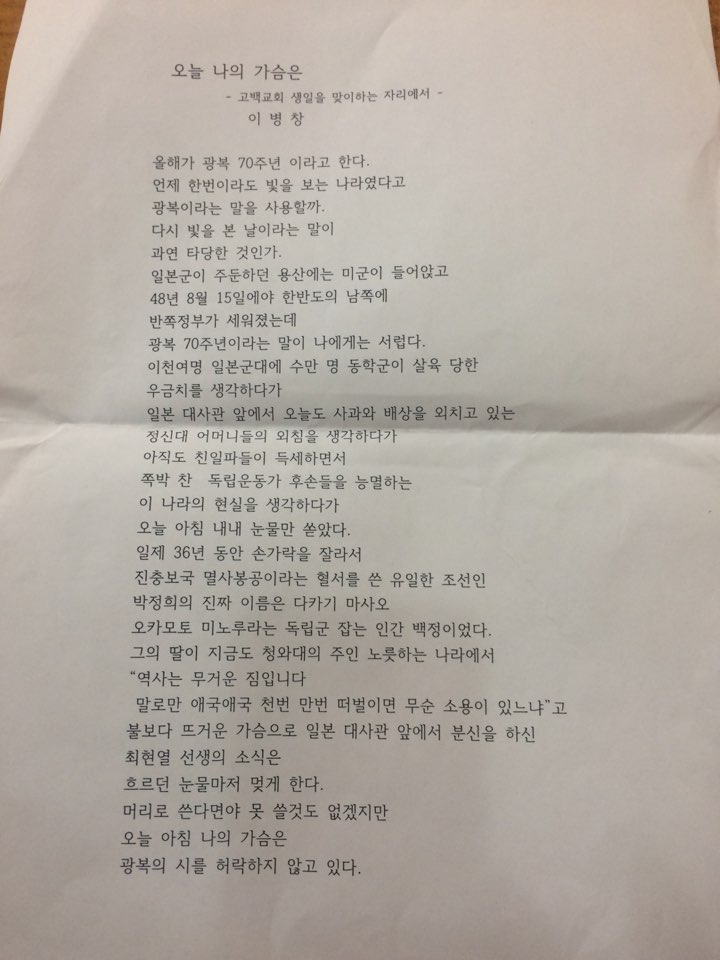 오늘 나의 가슴은
- 고백교회 생일을 맞이하는 자리에서 -
이 병 창
올해가 광복 70주년 이라고 한다.
언제 한번이라도 빛을 보는 나라였다고
광복이라는 말을 사용할까.
다시 빛을 본 날이라는 말이
과연 타당한 것인가.
일본군이 주둔하던 용산에는 미군이 들어앉고
48년 8월 15일에야 한반도의 남쪽에
반쪽정부가 세워졌는데
광복 70주년이라는 말이 나에게는 서럽다.
이천여명 일본군대에 수만 명 동학군이 살육 당한
우금치를 생각하다가
일본 대사관 앞에서 오늘도 사과와 배상을 외치고 있는
정신대 어머니들의 외침을 생각하다가
아직도 친일파들이 득세하면서
쪽박 찬 독립운동가 후손들을 능멸하는
이 나라의 현실을 생각하다가
오늘 아침 내내 눈물만 쏟았다.
일제 36년 동안 손가락을 잘라서
진충보국 멸사봉공이라는 혈서를 쓴 유일한 조선인
박정희의 진짜 이름은 다카기 마사오
오카모토 미노루라는 독립군 잡는 인간 백정이었다.
그의 딸이 지금도 청와대의 주인 노릇하는 나라에서
“역사는 무거운 짐입니다
말로만 애국애국 천번 만번 떠벌이면 무순 소용이 있느냐”고
불보다 뜨거운 가슴으로 일본 대사관 앞에서 분신을 하신
최현열 선생의 소식은
흐르던 눈물마저 멎게 한다.
머리로 쓴다면야 못 쓸것도 없겠지만
오늘 아침 나의 가슴은
광복의 시를 허락하지 않고 있다.